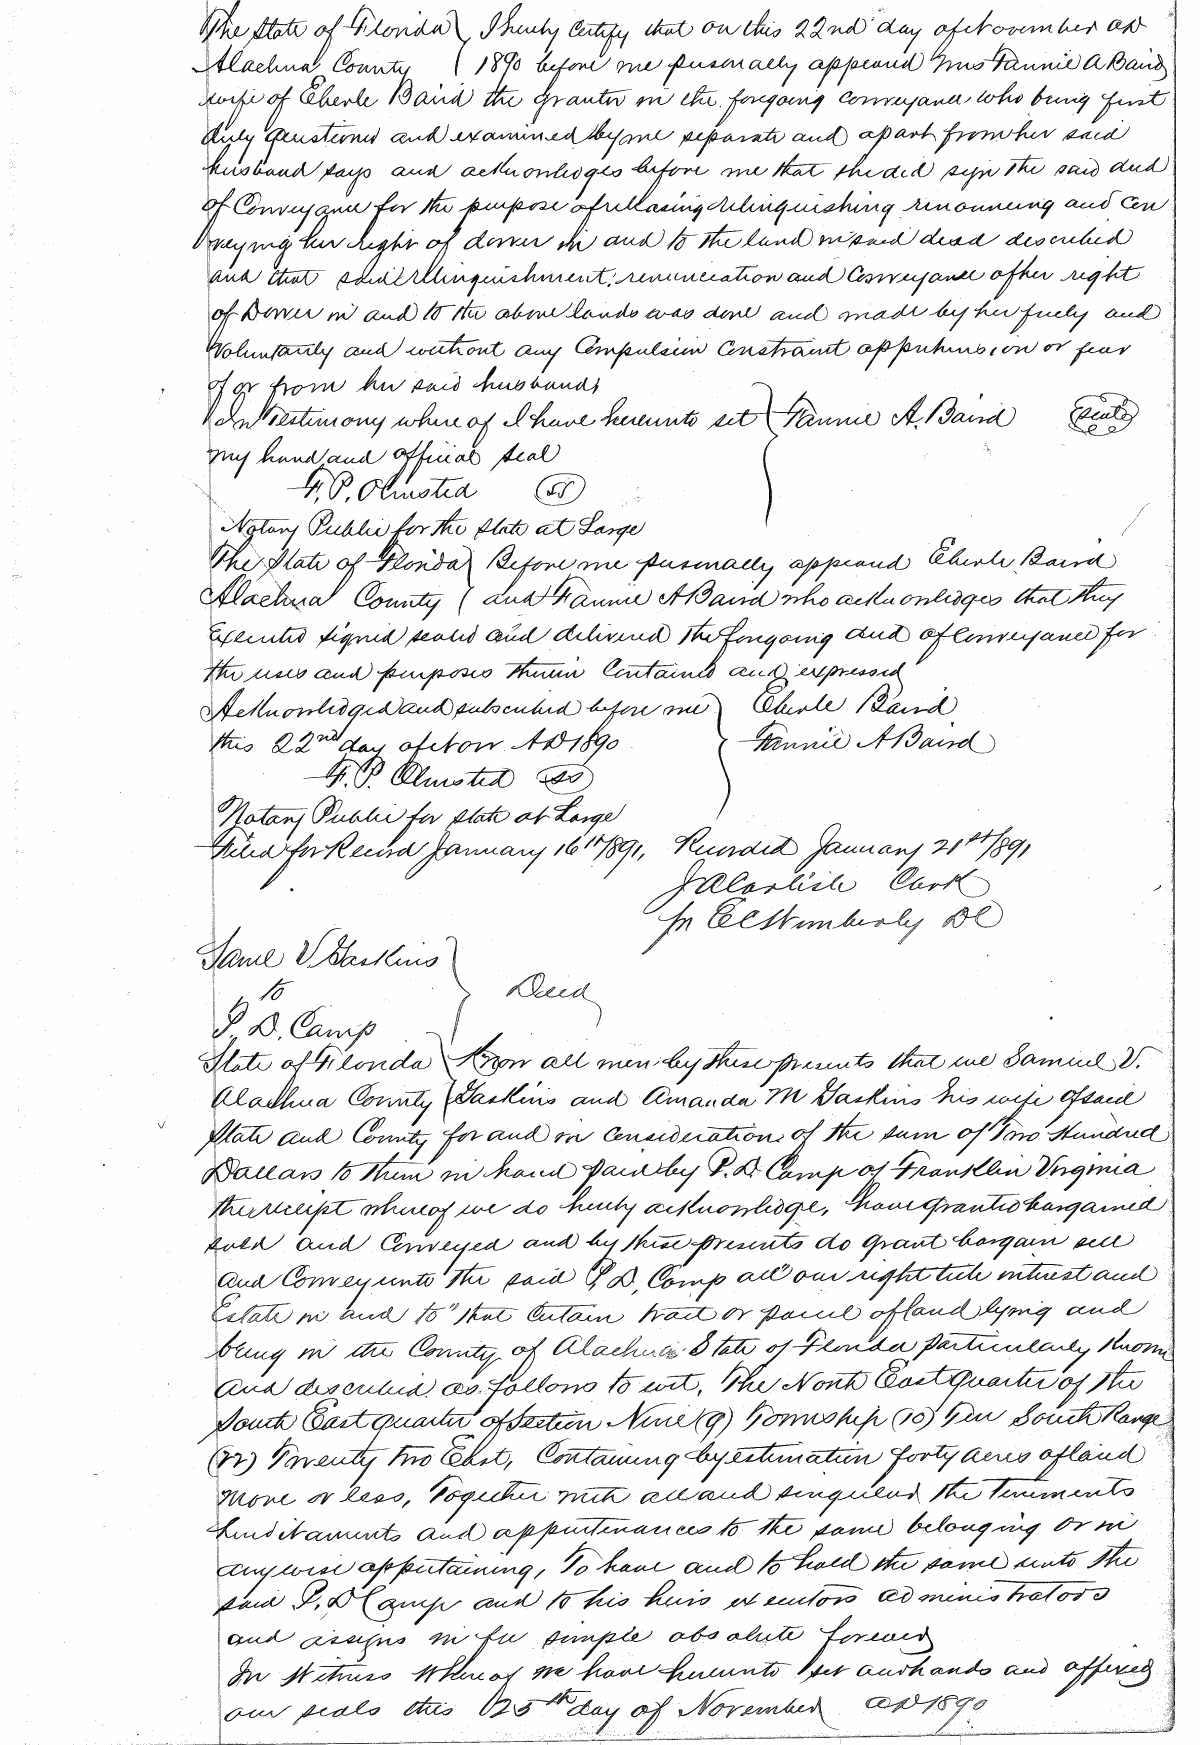 The State of Florida } I hereby Certify that on this 22nd day of November AD
Alachua County } 1890 before me personally appeared Mrs Fannie A Baird
wife of Eberle Baird the grantor in the foregoing conveyance who being first
duly questioned and examined by me separate and apart from her said
husband says and acknowledges before me that she did sign the said deed
of Conveyance for the purpose of releasing relinquishing renouncing and Con
veying her right of dower in and to the land in said deed described
and that said relinquishment, renunciation and Conveyance of her right
of Dower in and to the above lands was done and made by her freely and
Voluntarily and without any Compulsion Constraint apprehension or fear
of or from her said husband,
In Testimony where of I have hereunto set } Fannie A. Baird (seal)
my hand and official seal
F. P. Olmsted
Notary Public for the State at Large
The State of Florida } Before me personally appeared Eberle Baird
Alachua County } and Fannie A Baird who acknowledges that they
Executed signed sealed and delivered the foregoing deed of Conveyance for
the uses and purposes therein Contained and expressed
Acknowledged and subscribed before me } Eberle Baird
this 22nd day of Nov AD 1890 Fannie A Baird
F. P. Olmsted
Notary Public for State at Large
Filed for Record January 16th 1891, Recorded January 21st 1891
J A Carlisle Clerk
Pr E C Wimberly DC
Saml V. Gaskins
to } Deed
P. D. Camp
State of Florida } Know all men by these presents that we Samuel V.
Alachua County } Gaskins and Amanda M Gaskins his wife of said
State and County for and in consideration of the sum of Two Hundred
Dollars to them in hand paid by P. D. Camp of Franklin Virginia
the receipt whereof we do hereby acknowledge, have granted bargained
sold and Conveyed and by these presents do grant bargain sell
and Convey unto the said P. D. Camp all our right title interest and
Estate in and to that certain tract or parcel of land lying and
being in the County of Alachua State of Florida particularly Known
and described as follows to wit, The North East quarter of the
South East quarter of Section Nine (9) Township (10) Ten South Range
(22) Twenty two East, Containing by estimation forty acres of land
more or less, Together with all and singular the tenements
hereditaments and appurtenances to the same belonging or in
anywise appertaining, To have and to hold the same unto the
said P. D Camp and to his heirs executors administrators
and assigns in fee simple absolute forever
In Witness Whereof we have hereunto set our hands and affixed
our seals this 25th day of November AD 1890